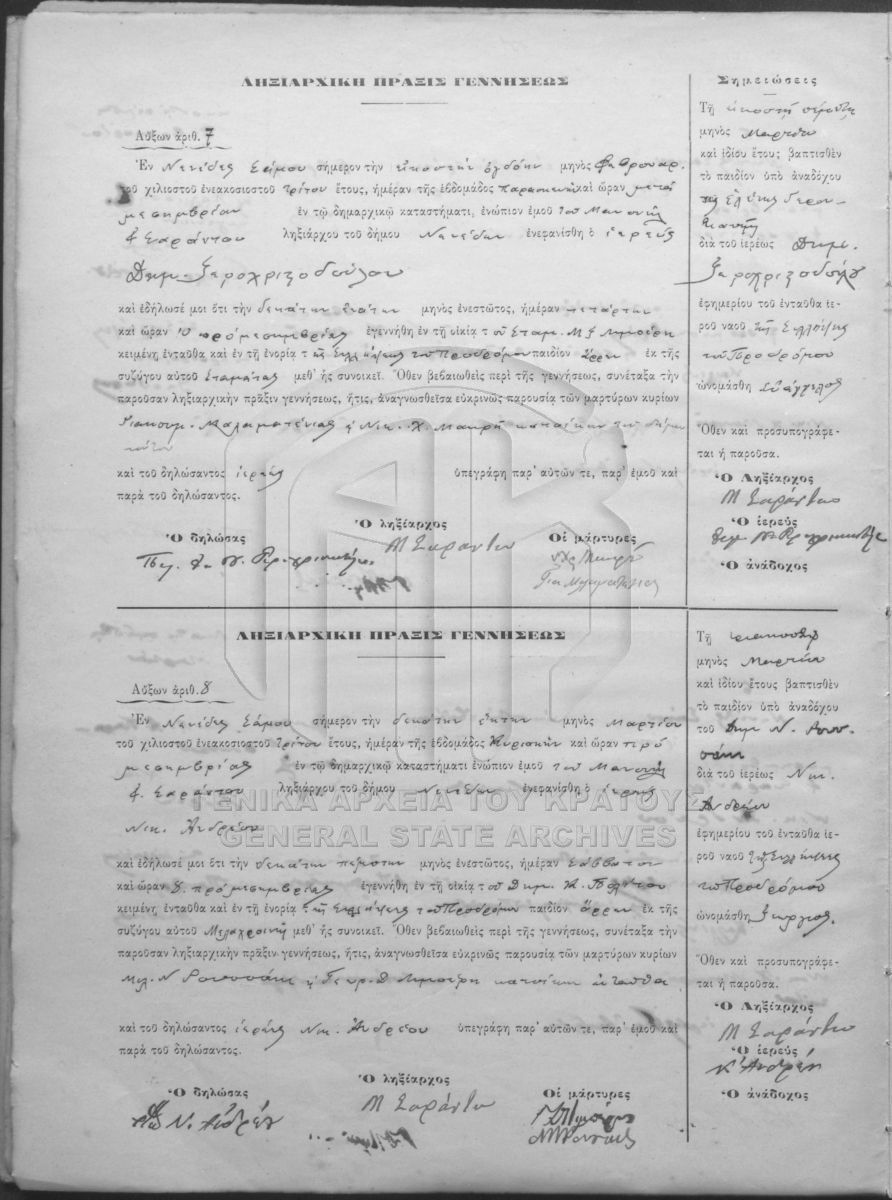 ΛΗΞΙΑΡΧΙΚΗ ΠΡΑΞΙΣ ΓΕΝΝΗΣΕΩΣ
Αὔξων ἀριθ. 7
Ἐν Νενέδες Σάμου σήμερον τὴν εἰκοστὴν ὀγδόην μηνὸς Φεβρουαρ.
τοῦ χιλιοστοῦ ἐνεακοσιοστοῦ τρίτου ἔτους, ἡμέραν τῆς ἑβδομάδος παρασκευὴν καὶ ὥραν μετὰ
μεσημβρίαν ἐν τῷ δημαρχικῷ καταστήματι, ἐνώπιον ἐμοῦ τοῦ Μανουὴλ
Σαράντου ληξιάρχου τοῦ δήμου ἐνεφανίσθη ὁ ἱερεὺς
Δημ.
καὶ ἐδήλωσέ μοι ὅτι τὴν δεκάτην ἐνάτην μηνὸς ἐνεστῶτος, ἡμέραν τετάρτην
καὶ ὥραν πρὸ μεσημβρίας ἐγεννήθη ἐν τῇ οἰκίᾳ τοῦ Σταμ.
κειμένῃ ἐνταῦθα καὶ ἐν τῇ ἐνορίᾳ τῆς Συλλήψεως τοῦ Προδρόμου παιδίον ἄρρεν ἐκ τῆς
συζύγου αὐτοῦ Σταμάτας μεθ' ἧς συνοικεῖ. Ὅθεν βεβαιωθεὶς περὶ τῆς γεννήσεως, συνέταξα τὴν
παροῦσαν ληξιαρχικὴν πρᾶξιν γεννήσεως, ἥτις, ἀναγνωσθεῖσα εὐκρινῶς παρουσίᾳ τῶν μαρτύρων κυρίων
Νικ. Χ. Μαυρῆ κατοίκων τοῦ δήμου
τούτου
καὶ τοῦ δηλώσαντος ἱερέως ὑπεγράφη παρ' αὐτῶν τε, παρ' ἐμοῦ καὶ
παρὰ τοῦ δηλώσαντος.
Ὁ δηλώσας
Ὁ ληξίαρχος
Μ Σαράντου
Οἱ μάρτυρες
Σημειώσεις
Τῇ εἰκοστῇ πέμπτῃ
μηνὸς Μαρτίου
καὶ ἰδίου ἔτους βαπτισθὲν
τὸ παιδίον ὑπὸ ἀναδόχου
τῆς Ἑλένης
διὰ τοῦ ἱερέως Δημ.
ἐφημερίου τοῦ ἐνταῦθα ἱε-
ροῦ ναοῦ τῆς Συλλήψεως
τοῦ Προδρόμου
ὠνομάσθη Εὐάγγελος
Ὅθεν καὶ προσυπογράφε-
ται ἡ παροῦσα.
Ὁ Ληξίαρχος
Μ Σαράντου
Ὁ ἱερεὺς
Ὁ ἀνάδοχος
ΛΗΞΙΑΡΧΙΚΗ ΠΡΑΞΙΣ ΓΕΝΝΗΣΕΩΣ
Αὔξων ἀριθ. 8
Ἐν Νενέδες Σάμου σήμερον τὴν δεκάτην ἕκτην μηνὸς Μαρτίου
τοῦ χιλιοστοῦ ἐνεακοσιοστοῦ τρίτου ἔτους, ἡμέραν τῆς ἑβδομάδος Κυριακὴν καὶ ὥραν πρὸ
μεσημβρίας ἐν τῷ δημαρχικῷ καταστήματι ἐνώπιον ἐμοῦ τοῦ Μανουὴλ
Σαράντου ληξιάρχου τοῦ δήμου ἐνεφανίσθη ὁ ἱερεὺς
Νικ. Ἀνδρέου
ΓΕΝΙΚΑ ΑΡΧΕΙΑ ΤΟΥ ΚΡΑΤΟΥΣ
GENERAL STATE ARCHIVES
καὶ ἐδήλωσέ μοι ὅτι τὴν δεκάτην πέμπτην μηνὸς ἐνεστῶτος, ἡμέραν Σάββατον
καὶ ὥραν 8. πρὸ μεσημβρίας ἐγεννήθη ἐν τῇ οἰκίᾳ τοῦ Δημ. Κ.
κειμένῃ ἐνταῦθα καὶ ἐν τῇ ἐνορίᾳ τῆς Συλλήψεως τοῦ Προδρόμου παιδίον ἄρρεν ἐκ τῆς
συζύγου αὐτοῦ Μελαχροινῆς μεθ' ἧς συνοικεῖ. Ὅθεν βεβαιωθεὶς περὶ τῆς γεννήσεως, συνέταξα τὴν
παροῦσαν ληξιαρχικὴν πρᾶξιν γεννήσεως, ἥτις, ἀναγνωσθεῖσα εὐκρινῶς παρουσίᾳ τῶν μαρτύρων κυρίων
κατοίκων ἐνταῦθα
καὶ τοῦ δηλώσαντος ἱερέως Νικ. Ἀνδρέου ὑπεγράφη παρ' αὐτῶν τε, παρ' ἐμοῦ καὶ
παρὰ τοῦ δηλώσαντος.
Ὁ δηλώσας
Ν. Ἀνδρέου
Ὁ ληξίαρχος
Μ Σαράντου
Οἱ μάρτυρες
Τῇ τριακοστῇ
μηνὸς Μαρτίου
καὶ ἰδίου ἔτους βαπτισθὲν
τὸ παιδίον ὑπὸ ἀναδόχου
τοῦ Δημ. Ν.
διὰ τοῦ ἱερέως Νικ.
Ἀνδρέου
ἐφημερίου τοῦ ἐνταῦθα ἱε-
ροῦ ναοῦ τῆς Συλλήψεως
τοῦ Προδρόμου
ὠνομάσθη Γεώργιος.
Ὅθεν καὶ προσυπογράφε-
ται ἡ παροῦσα.
Ὁ Ληξίαρχος
Μ Σαράντου
Ὁ ἱερεὺς
Ν Ἀνδρέου
Ὁ ἀνάδοχος